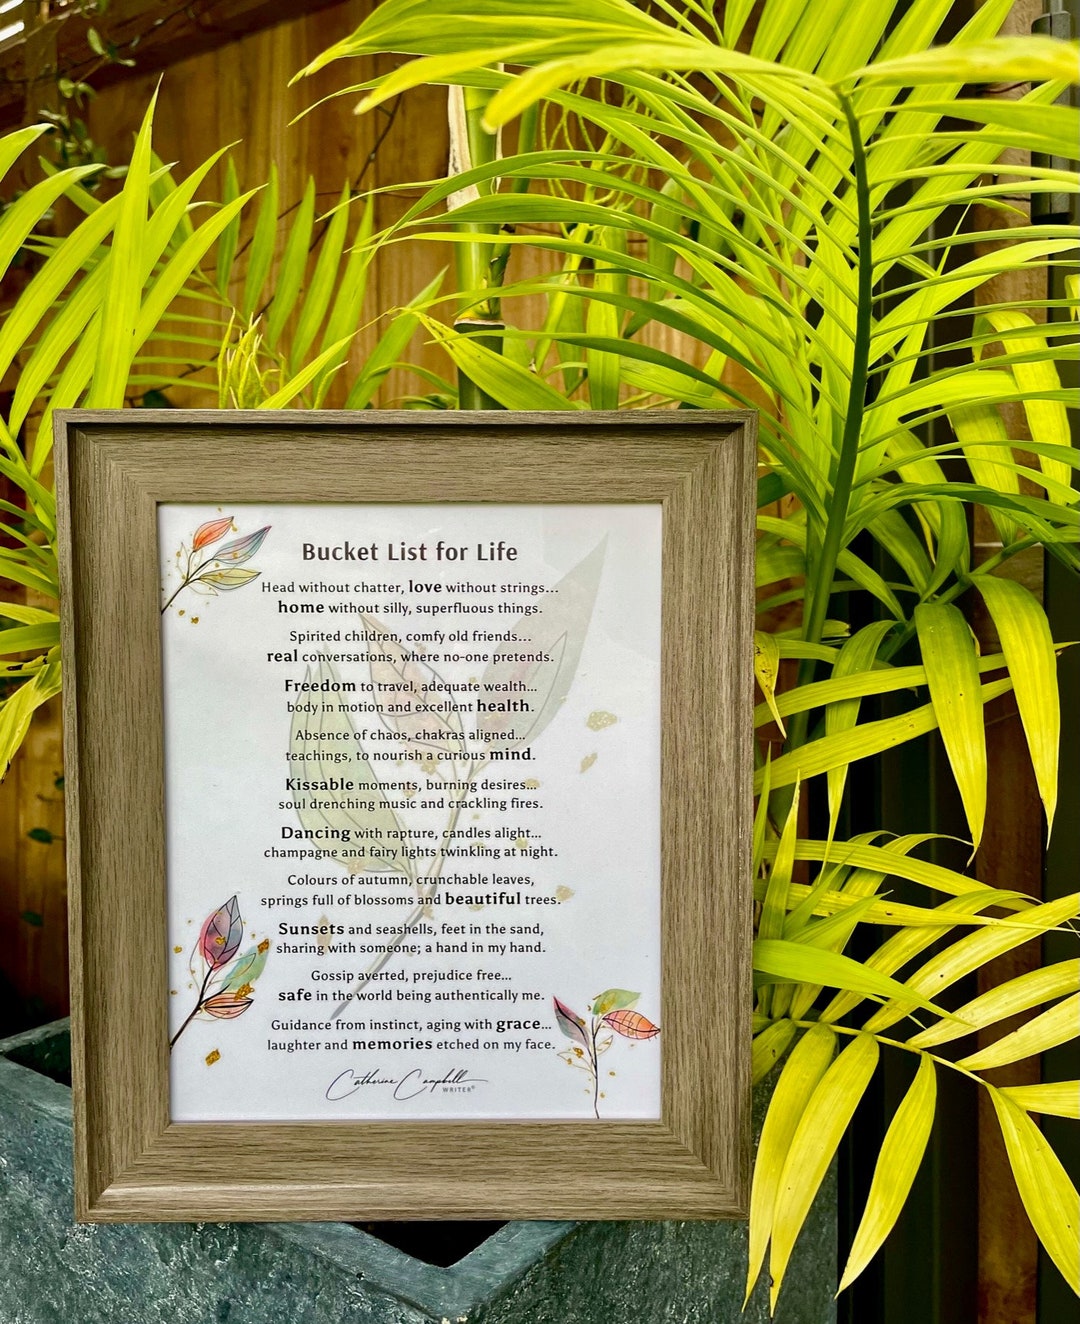 Bucket List for Life
Head without chatter, love without strings...
home without silly, superfluous things.
Spirited children, comfy old friends...
real conversations, where no-one pretends.
Freedom to travel, adequate wealth...
body in motion and excellent health.
Absence of chaos, chakras aligned...
teachings, to nourish a curious mind.
Kissable moments, burning desires...
soul drenching music and crackling fires.
Dancing with rapture, candles alight...
champagne and fairy lights twinkling at night.
Colours of autumn, crunchable leaves,
springs full of blossoms and beautiful trees.
Sunsets and seashells, feet in the sand,
sharing with someone; a hand in my hand.
Gossip averted, prejudice free...
safe in the world being authentically me.
Guidance from instinct, aging with grace...
laughter and memories etched on my face.
Catherine Campbell
WRITER®